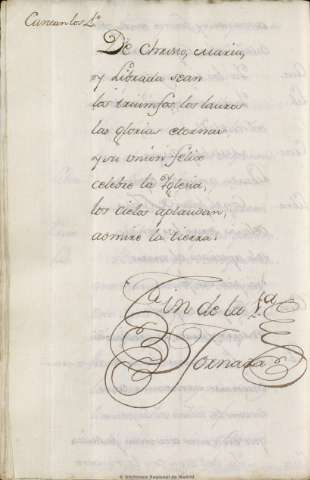 Cantan los 4.º
De Christo, Maria,
y Librada sean
los triumfos, los lauros
las glorias eternas
y su union felix
celebre la Yglesia,
los cielos aplaudan,
admire la tierra.
Fin de la 1.ª
Jornada
© Biblioteca Regional de Madrid